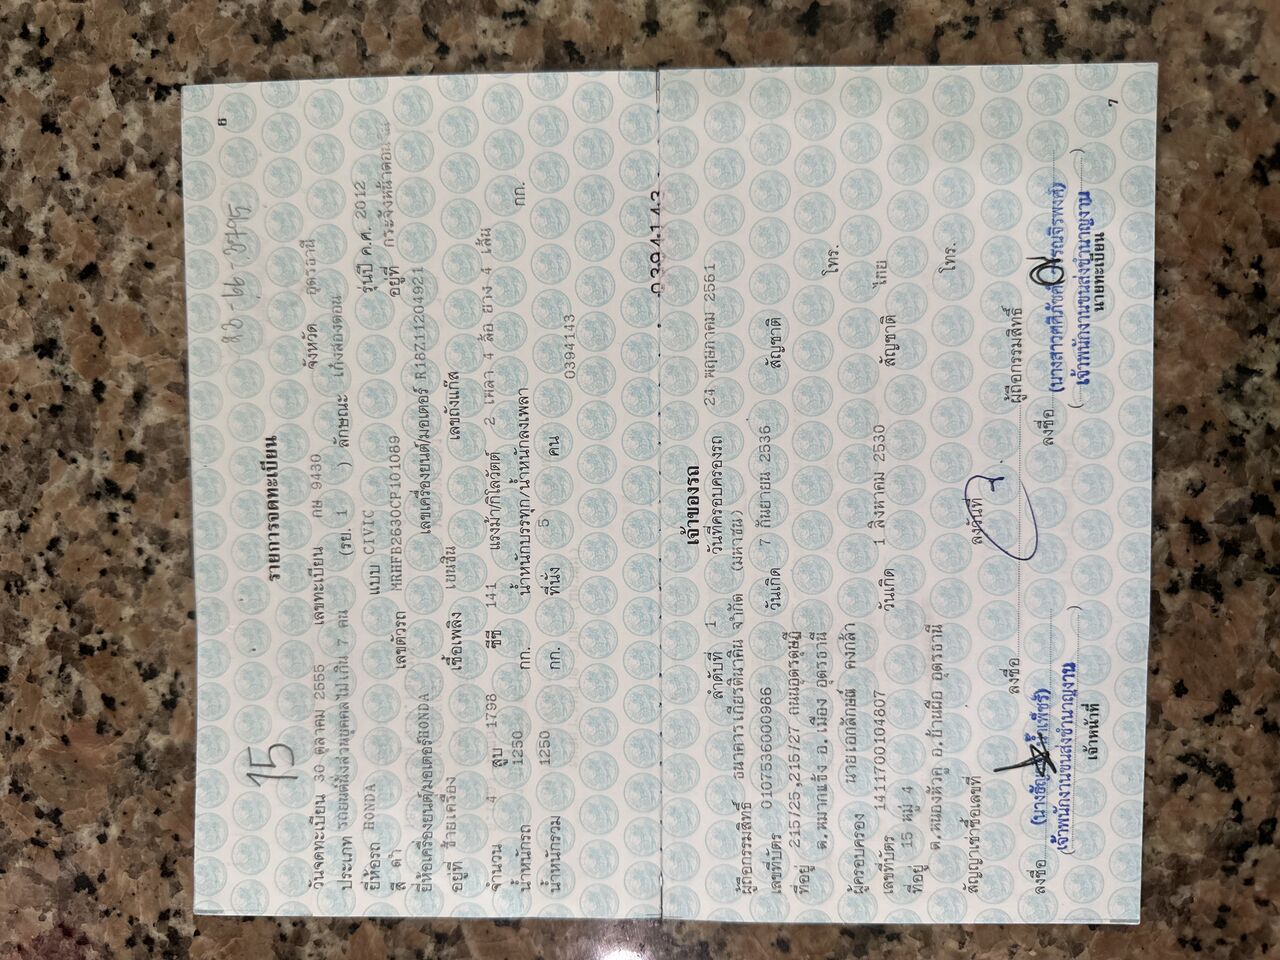 6
15
รายการจดทะเบียน
วันจดทะเบียน 30 ตุลาคม 2555 เลขทะเบียน กษ 9430 จังหวัด อุดรธานี
ประเภท รถยนต์นั่งส่วนบุคคลไม่เกิน 7 คน (รย. 1 ) ลักษณะ เก๋งสองตอน
ยี่ห้อรถ HONDA แบบ CIVIC รุ่นปี ค.ศ. 2012
สี ดำ เลขตัวรถ MRHFB2630CP101089 อยู่ที่ กระจังหน้าตอน
ยี่ห้อเครื่องยนต์/มอเตอร์ HONDA เลขเครื่องยนต์/มอเตอร์ R18Z11204921
อยู่ที่ ซ้ายเครื่อง เชื้อเพลิง เบนซิน เลขถังแก๊ส
จำนวน 4 สูบ 1798 ซีซี 141 แรงม้า/กิโลวัตต์ 2 เพลา 4 ล้อ ยาง 4 เส้น
น้ำหนักรถ 1250 กก. น้ำหนักบรรทุก/น้ำหนักลงเพลา กก.
น้ำหนักรวม 1250 กก. ที่นั่ง 5 คน 0394143
0394143
เจ้าของรถ
ลำดับที่ 1 วันที่ครอบครองรถ 24 พฤษภาคม 2561
ผู้ถือกรรมสิทธิ์ ธนาคารเกียรตินาคิน จำกัด (มหาชน)
เลขที่บัตร 0107536000986 วันเกิด 7 กันยายน 2536 สัญชาติ
ที่อยู่ 215/25,215/27 ถนนอุดรดุษฎี
ต.หมากแข้ง อ.เมือง อุดรธานี โทร.
ผู้ครอบครอง นายเอกลักษณ์ คงกล้า
เลขที่บัตร 1411700104807 วันเกิด 1 สิงหาคม 2530 สัญชาติ ไทย
ที่อยู่ 15 หมู่ 4
ต.หนองหัวคู อ.บ้านผือ อุดรธานี โทร.
สัญญาเช่าซื้อเลขที่ ลงวันที่
ลงชื่อ ผู้ถือกรรมสิทธิ์
ลงชื่อ ลงชื่อ
(เจ้าพนักงานขนส่งชำนาญงาน) (เจ้าพนักงานขนส่งชำนาญงาน)
เจ้าหน้าที่ นายทะเบียน
7